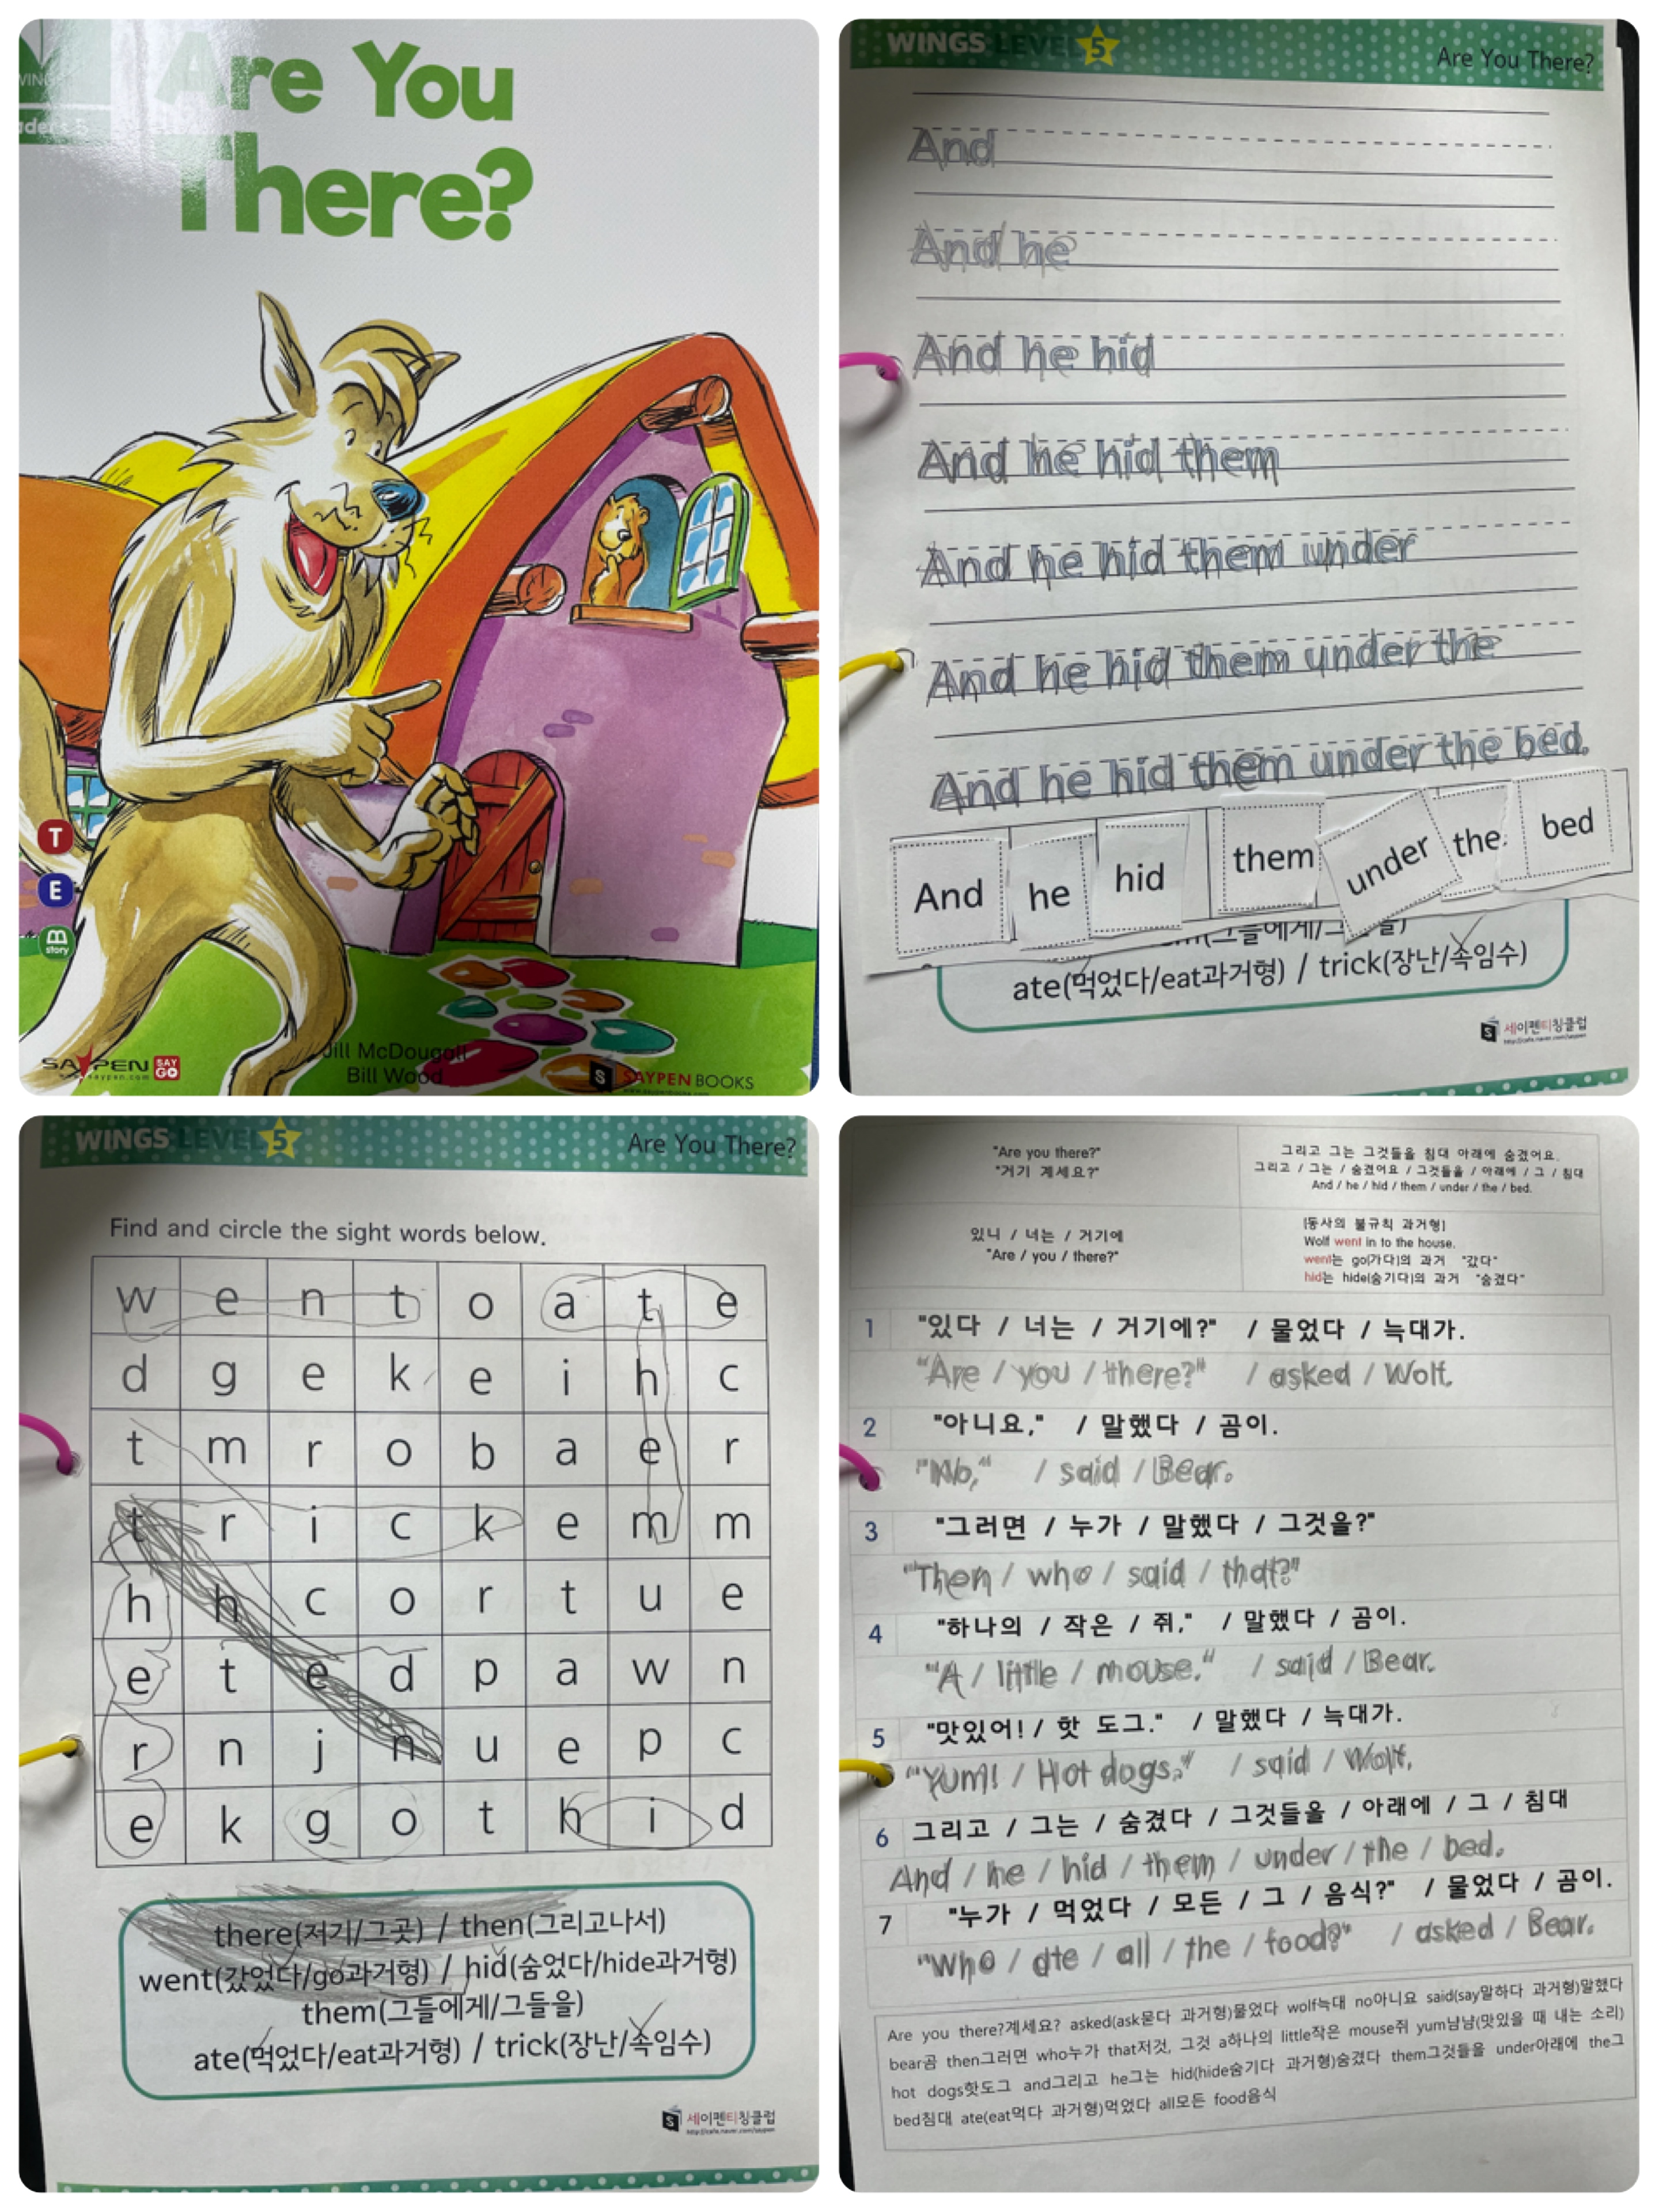 Are You
There?
T
E
story
SAYPEN SAY GO
www.saypen.com
Jill McDougall
Bill Wood
SAYPEN BOOKS
WINGS LEVEL 5
Are You There?
And
And he
And he hid
And he hid them
And he hid them under
And he hid them under the
And he hid them under the bed.
And he hid them under the bed
ate(먹었다/eat과거형) / trick(장난/속임수)
세이펜티칭클럽
http://cafe.naver.com/saypen
WINGS LEVEL 5
Are You There?
Find and circle the sight words below.
w e n t o a t e
d g e k e i h c
t m r o b a e r
t r i c k e m m
h h c o r t u e
e t e d p a w n
r n j n u e p c
e k g o t h i d
there(저기/그곳) / then(그리고나서)
went(갔었다/go과거형) / hid(숨었다/hide과거형)
them(그들에게/그들을)
ate(먹었다/eat과거형) / trick(장난/속임수)
세이펜티칭클럽
http://cafe.naver.com/saypen
"Are you there?"
"거기 계세요?"
그리고 그는 그것들을 침대 아래에 숨겼어요.
그리고 / 그는 / 숨겼어요 / 그것들을 / 아래에 / 그 / 침대
And / he / hid / them / under / the / bed.
있니 / 너는 / 거기에
"Are / you / there?"
[동사의 불규칙 과거형]
Wolf went in to the house.
went는 go(가다)의 과거 "갔다"
hid는 hide(숨기다)의 과거 "숨겼다"
1 "있다 / 너는 / 거기에?" / 물었다 / 늑대가.
"Are / you / there?" / asked / Wolf.
2 "아니요," / 말했다 / 곰이.
"No," / said / Bear.
3 "그러면 / 누가 / 말했다 / 그것을?"
"Then / who / said / that?"
4 "하나의 / 작은 / 쥐," / 말했다 / 곰이.
"A / little / mouse." / said / Bear.
5 "맛있어! / 핫 도그." / 말했다 / 늑대가.
"Yum! / Hot dogs." / said / Wolf.
6 그리고 / 그는 / 숨겼다 / 그것들을 / 아래에 / 그 / 침대
And / he / hid / them / under / the / bed.
7 "누가 / 먹었다 / 모든 / 그 / 음식?" / 물었다 / 곰이.
"Who / ate / all / the / food?" / asked / Bear.
Are you there?계세요? asked(ask묻다 과거형)물었다 wolf늑대 no아니요 said(say말하다 과거형)말했다
bear곰 then그러면 who누가 that저것, 그것 a하나의 little작은 mouse쥐 yum냠냠(맛있을 때 내는 소리)
hot dogs핫도그 and그리고 he그는 hid(hide숨기다 과거형)숨겼다 them그것들을 under아래에 the그
bed침대 ate(eat먹다 과거형)먹었다 all모든 food음식